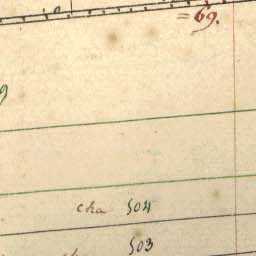 = 69.
cha 504
503